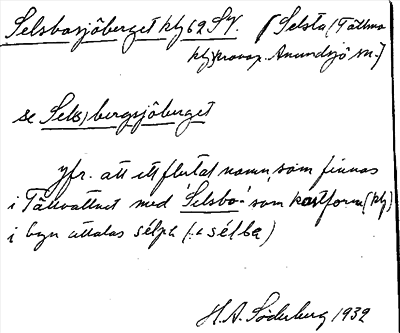 Selsbosjöberget klg 62 SV. [Selsta (Tällvno
klg) kronop. Anundsjö sn.]
se Sels)bergsjöberget
Jfr. att ett flertal namn, som finnas
i Tällvattnet med 'Selsbo-' som kartform (klg)
i byn uttalas sélpa (:a sélba)
H.A. Söderberg 1932